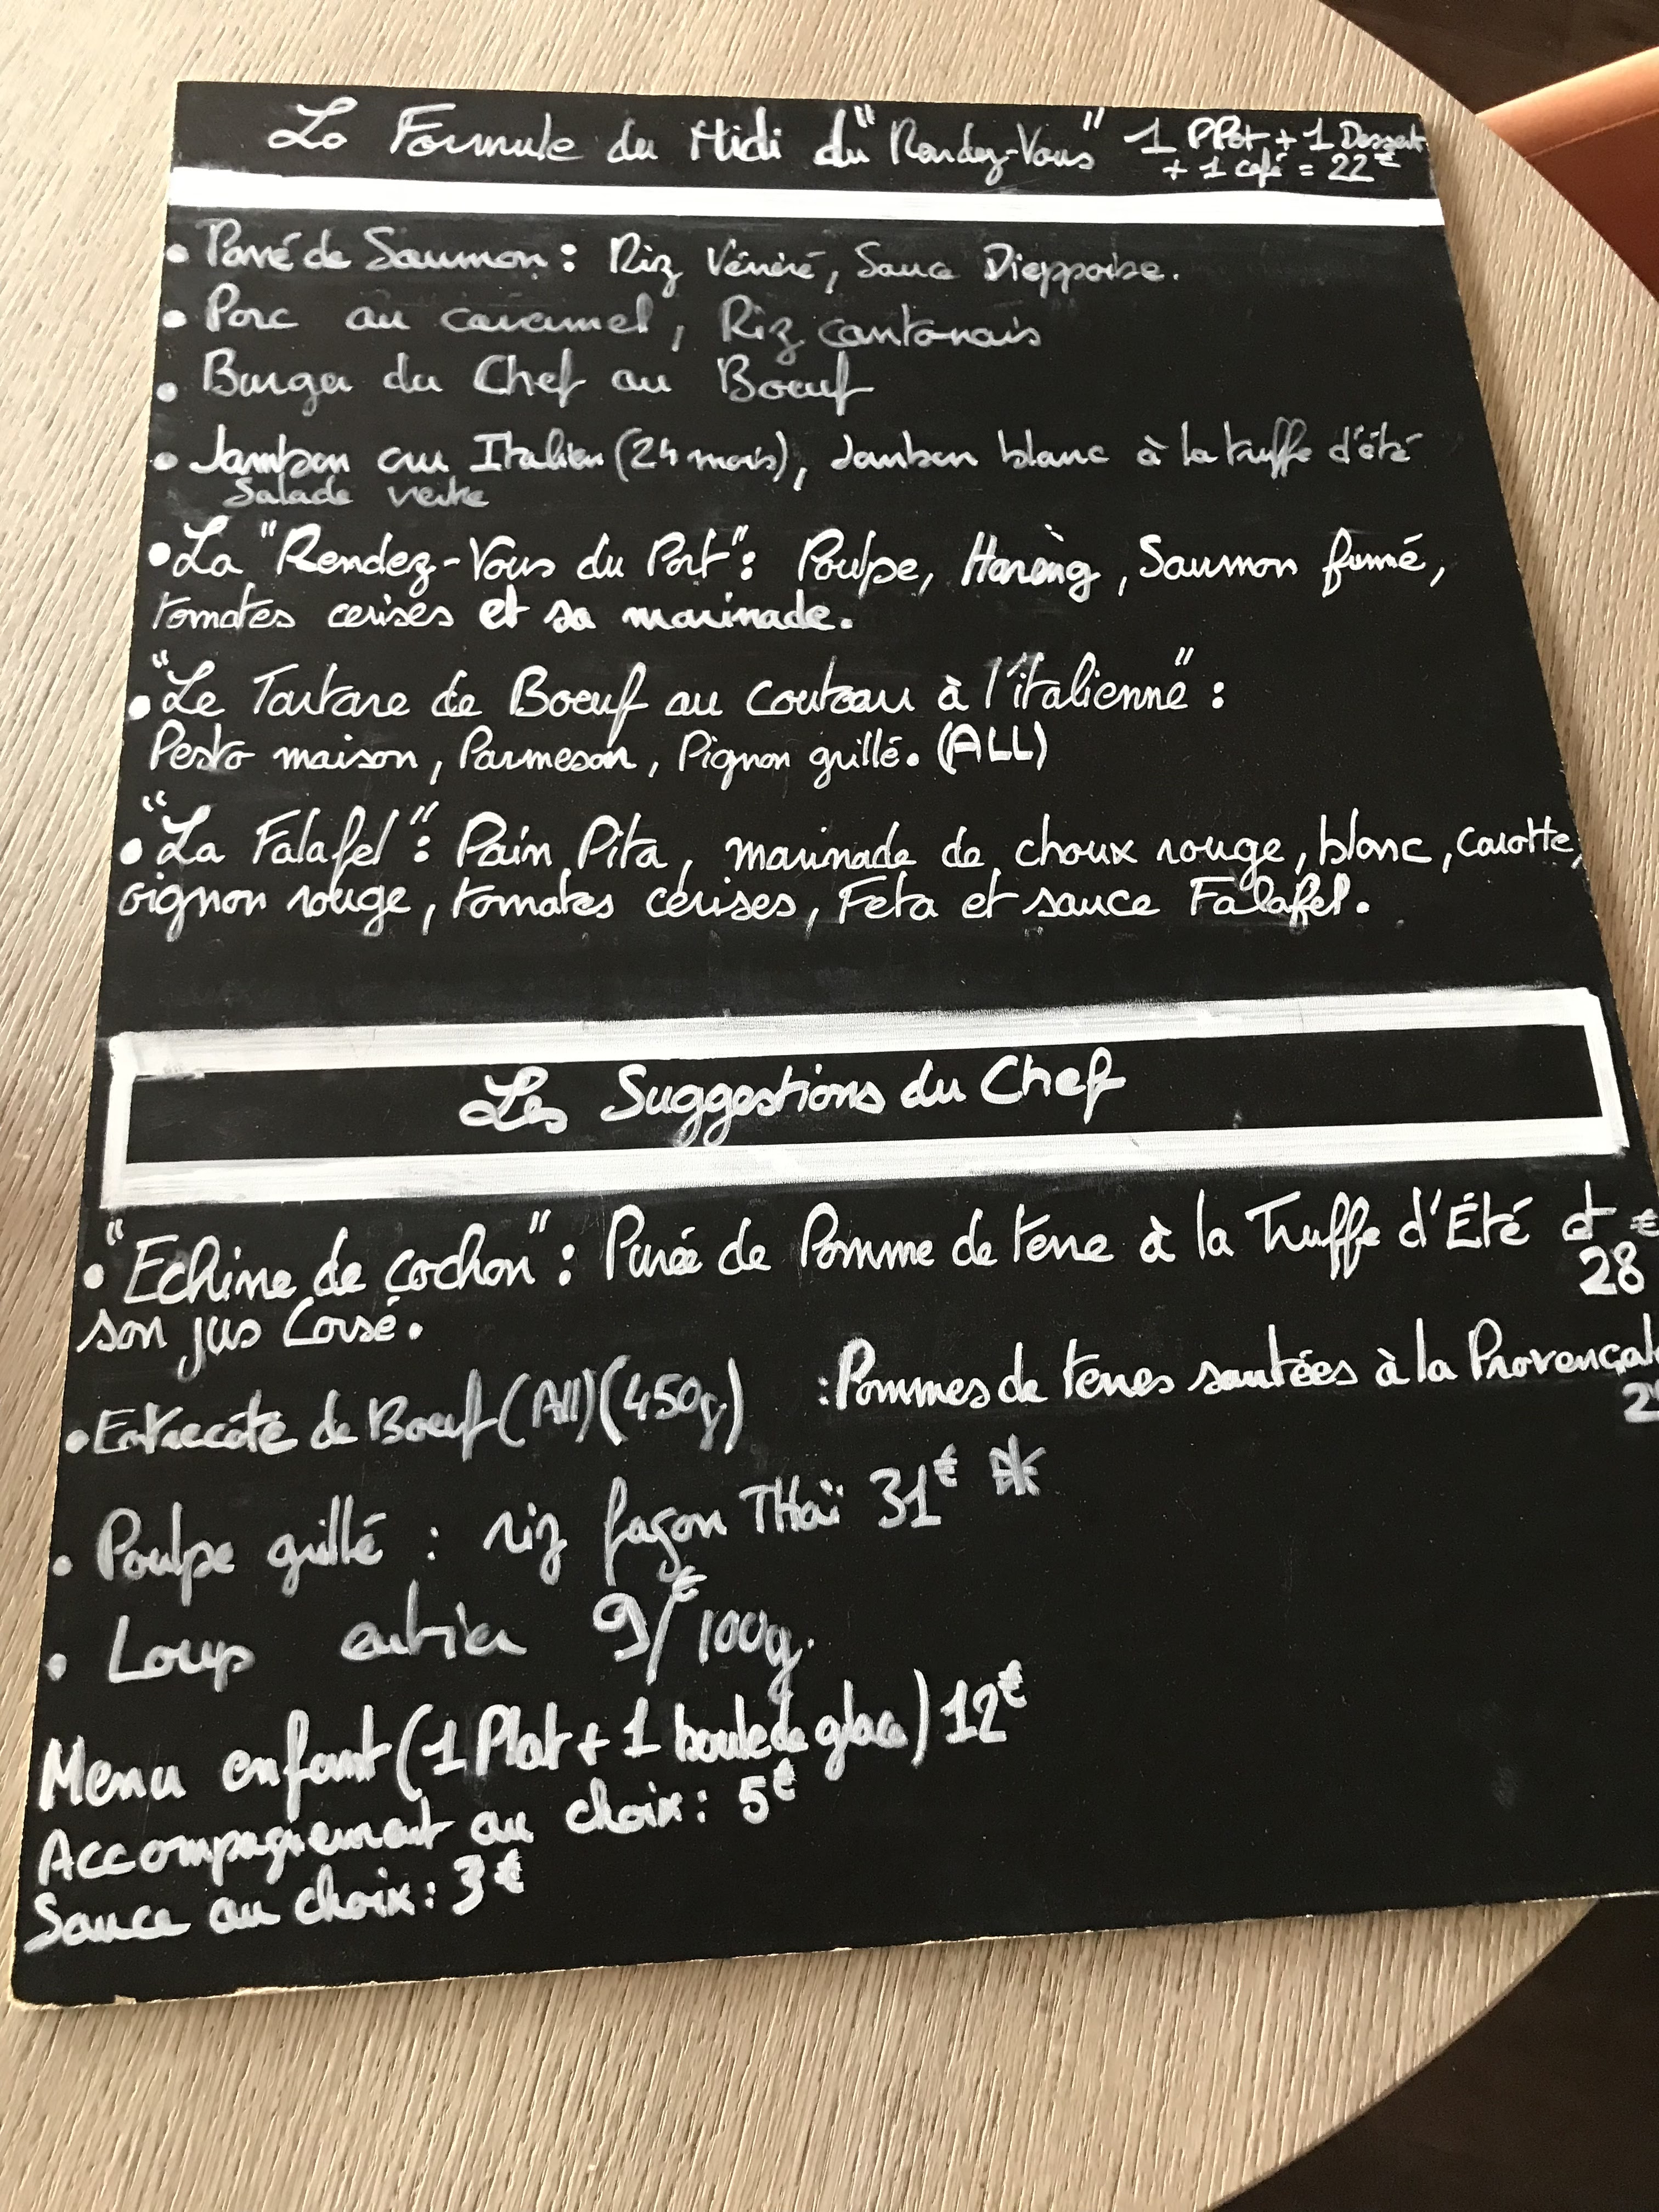 La Formule du Midi du "Rendez-Vous" 1 Plat + 1 Dessert
+ 1 café = 22€
• Pavé de Saumon : Riz Vénéré, Sauce Dieppoise.
• Porc au caramel, Riz cantonais
• Burger du Chef au Boeuf
• Jambon cru Italien (24 mois), Jambon blanc à la truffe d'été
Salade verte
• La "Rendez-Vous du Port" : Poulpe, Hareng, Saumon fumé,
tomates cerises et sa marinade.
• "Le Tartare de Boeuf au couteau à l'italienne" :
Pesto maison, Parmesan, Pignon grillé. (ALL)
• "La Falafel" : Pain Pita, marinade de choux rouge, blanc, carotte,
oignon rouge, tomates cerises, Feta et sauce Falafel.
Les Suggestions du Chef
• "Echine de cochon" : Purée de Pomme de terre à la Truffe d'Été et
son jus Corsé. 28€
• Entrecôte de Boeuf (All) (450g) : Pommes de terres sautées à la
• Poulpe grillé : riz façon THaï 31€ *
• Loup entier 9€/100g.
Menu enfant (1 Plat + 1 boule de glace) 12€
Accompagnement au choix : 5€
Sauce au choix : 3€